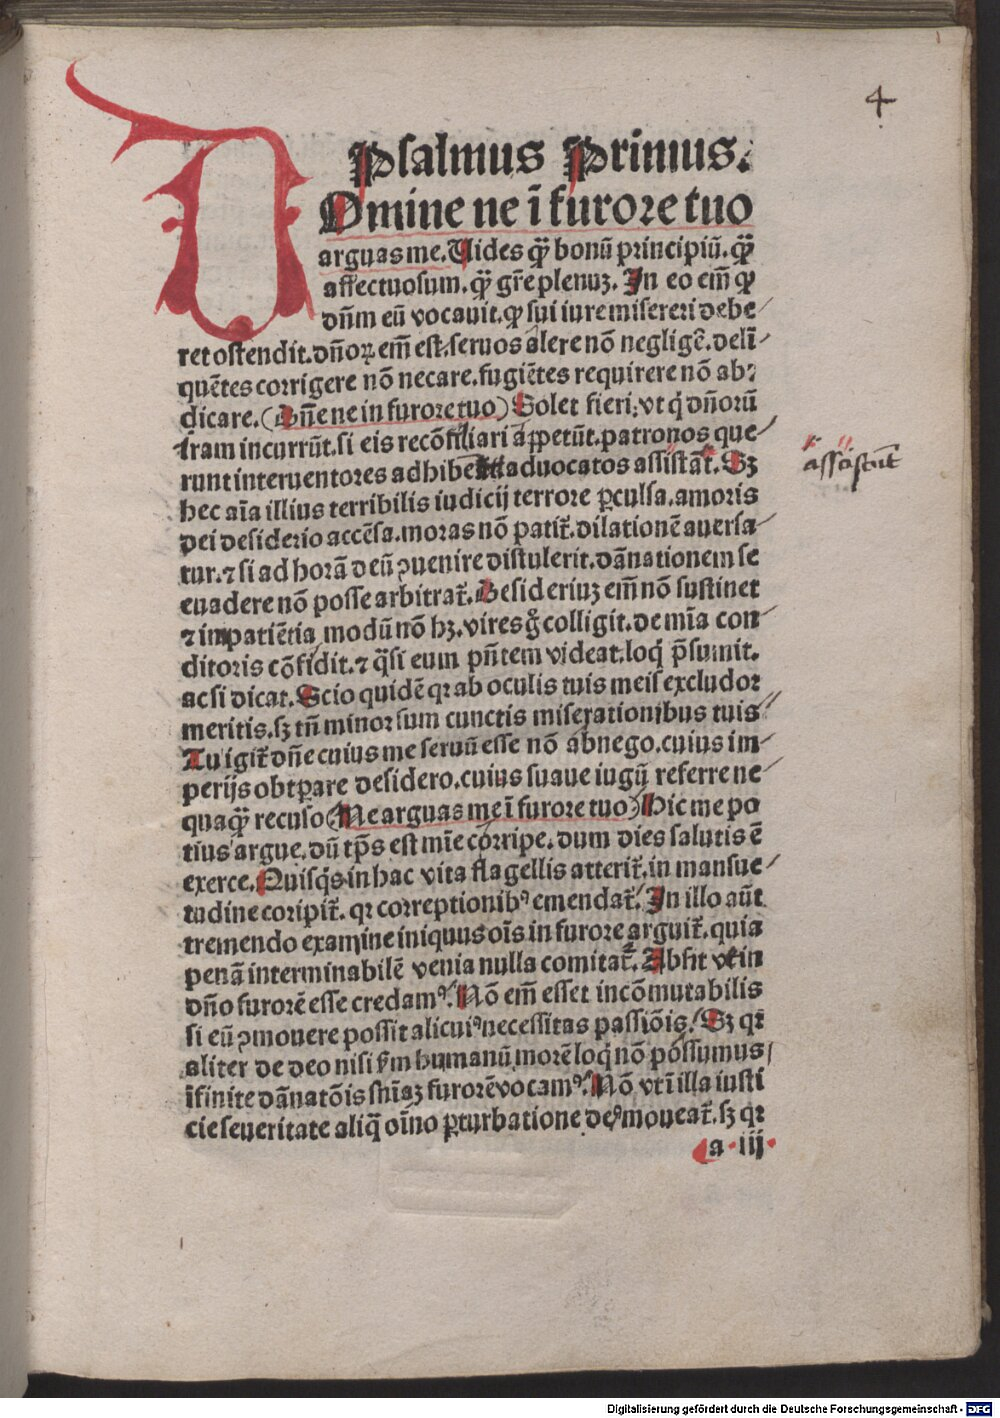 4
Psalmus Primus.
Domine ne ī furore tuo
arguas me. Uides q̄ꝫ bonū principiū. q̄ꝫ
affectuosum. q̄ꝫ gr̄e plenuꝫ. In eo em̄ ꝙ
dn̄m eū vocauit. ꝙ sui iure misereri debe⸗
ret ostendit. dn̄oꝝ em̄ est. seruos alere nō neglige̅. deli̅⸗
quētes corrigere nō necare. fugiētes requirere nō ab⸗
dicare. (Dn̄e ne in furore tuo) Solet fieri: vt q̇ dn̄orū
iram incurrūt. si eis recōsiliari appetūt. patronos que⸗
runt interuentores adhibēt aduocatos assistāt̄. Sꝫ
assistūt
hec aīa illius terribilis iudicij terrore ꝑculsa. amoris
dei desiderio accēsa. moras nō patit̄. dilationē auersa⸗
tur. ⁊ si ad horā deū ꝯuenire distulerit. dānationem se
euadere nō posse arbitrat̄. Desideriuꝫ em̄ nō sustinet
⁊ inpatiētia modū nō hꝫ. vires g̊ colligit. de mīa con⸗
ditoris cōfidit. ⁊ q̄si eum pn̄tem videat. loq̇ p̄sumit.
ac si dicat. Scio quidē qꝛ ab oculis tuis meis excludor
meritis. sꝫ tn̄ minor sum cunctis miserationibus tuis
Tu igit̄ dn̄e cuius me seruū esse nō abnego. cuius im⸗
perijs obtꝑare desidero. cuius suaue iugū referre ne⸗
quaq̄ꝫ recuso (Ne arguas me ī furore tuo) Hic me po
tius argue. dū tp̄s est mīe corripe. dum dies salutis ē
exerce. Quisq̇s in hac vita flagellis atterit̄. in mansue⸗
tudine coripit̄. qꝛ correptionibꝰ emendat̄. In illo aūt
tremendo examine iniquus oīs in furore arguit̄. quia
penā interminabilē venia nulla comitat̄. Absit vt in
dn̄o furorē esse credamꝰ. Nō em̄ esset incōmutabilis
si eū ꝯmouere possit alicuiꝰ necessitas passiōis. Sꝫ qꝛ
aliter de deo nisi sm̄ humanū morē loq̇ nō possumus
īfinite dānatōis sn̄iaꝫ furorē vocamꝰ. Nō vt ī illa iusti
cie seueritate aliq̄ oīno ꝑturbatione deꝰ moueat̄. sꝫ qꝛ
a iij
Digitalisierung gefördert durch die Deutsche Forschungsgemeinschaft - DFG